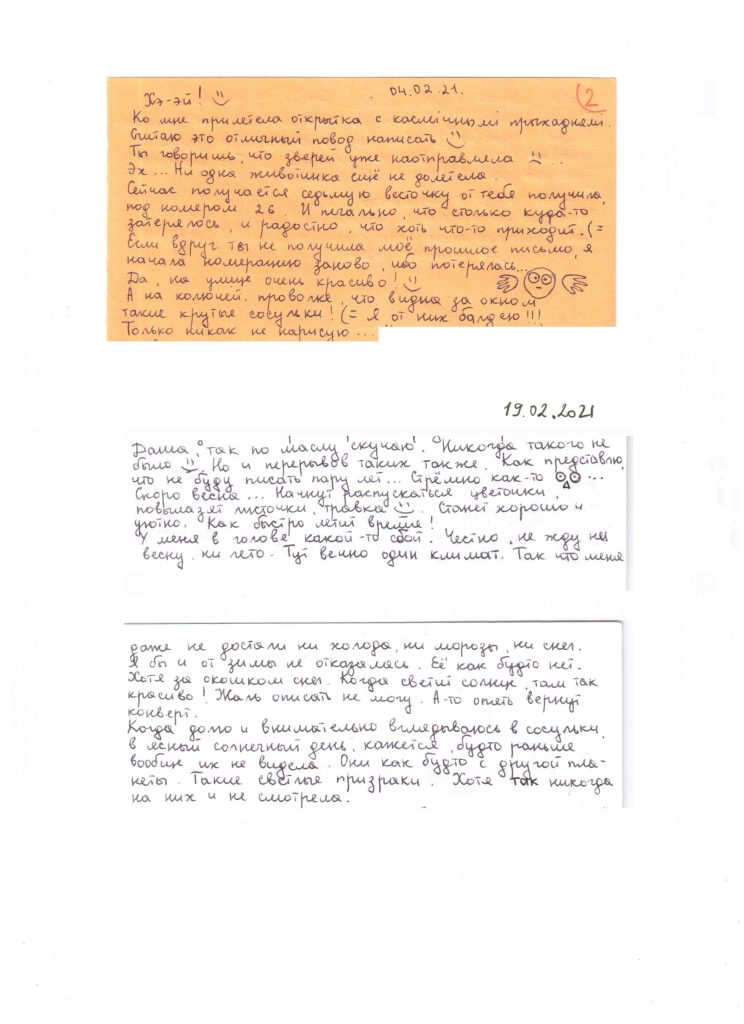 Хэ-эй!
04.02.21.
2
Ко мне прилетела открытка с касмічнымі прыхаднямі.
Считаю это отличный повод написать
Ты говоришь, что зверей уже наотправляла
Эх... Ни одна животинка ещё не долетела.
Сейчас получается седьмую весточку от тебя получила,
под номером 26. И печально, что столько куда-то
затерялось, и радостно, что хоть что-то приходит. (=
Если вдруг ты не получила моё прошлое письмо, я
начала номерацию заново, ибо потерялась...
Да, на улице очень красиво!
А на колючей проволке, что видна за окном
такие крутые сосульки! (= Я от них балдею!!!
Только никак не нарисую...
19.02.2021
Даша, так по маслу скучаю. Никогда такого не
было. Но и перерывов таких также. Как представлю,
что не буду писать пару лет... Стрёмно как-то ...
Скоро весна... Начнут распускаться цветочки,
повылазят листочки, травка. Станет хорошо и
уютно. Как быстро летит время!
У меня в голове какой-то сбой. Честно, не жду ни
весну, ни лето. Тут вечно один климат. Так что меня
даже не достали ни холода, ни морозы, ни снег.
Я бы и от зимы не отказалась. Её как будто нет.
Хотя за окошком снег. Когда светит солнце, там так
красиво! Жаль описать не могу. А-то опять вернут
конверт.
Когда долго и внимательно вглядываюсь в сосульки,
в ясный солнечный день, кажется, будто раньше
вообще их не видела. Они как будто с другой пла-
неты. Такие светлые призраки. Хотя так никогда
на них и не смотрела.